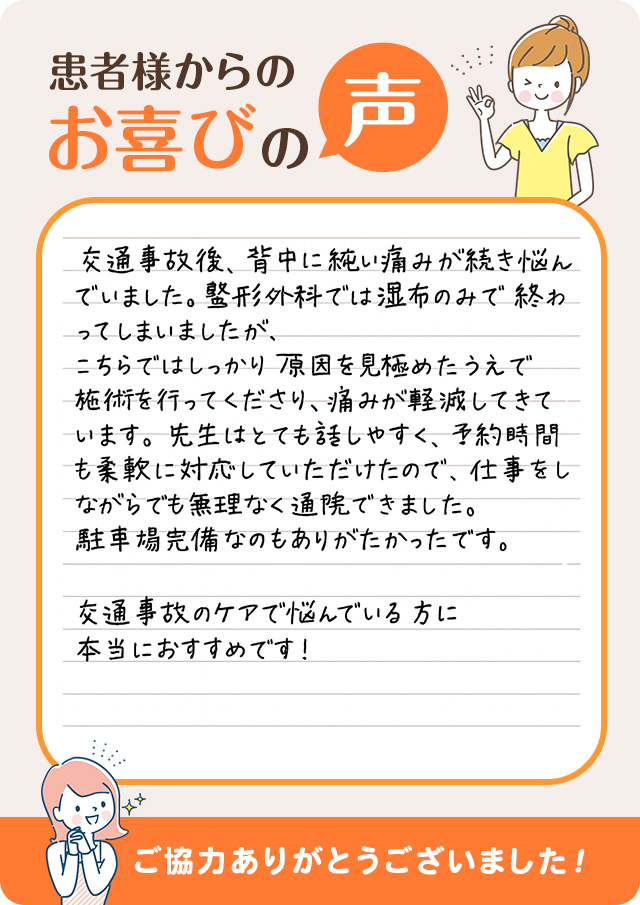 患者様からの
お喜びの
声
交通事故後、背中に純い痛みが続き悩ん
でいました。整形外科では湿布のみで終わ
ってしまいましたが、
こちらではしっかり原因を見極めたうえで
施術を行ってくださり、痛みが軽減してきて
います。先生はとても話しやすく、予約時間
も柔軟に対応していただけたので、仕事をし
ながらでも無理なく通院できました。
駐車場完備なのもありがたかったです。
交通事故のケアで悩んでいる方に
本当におすすめです！
ご協力ありがとうございました！